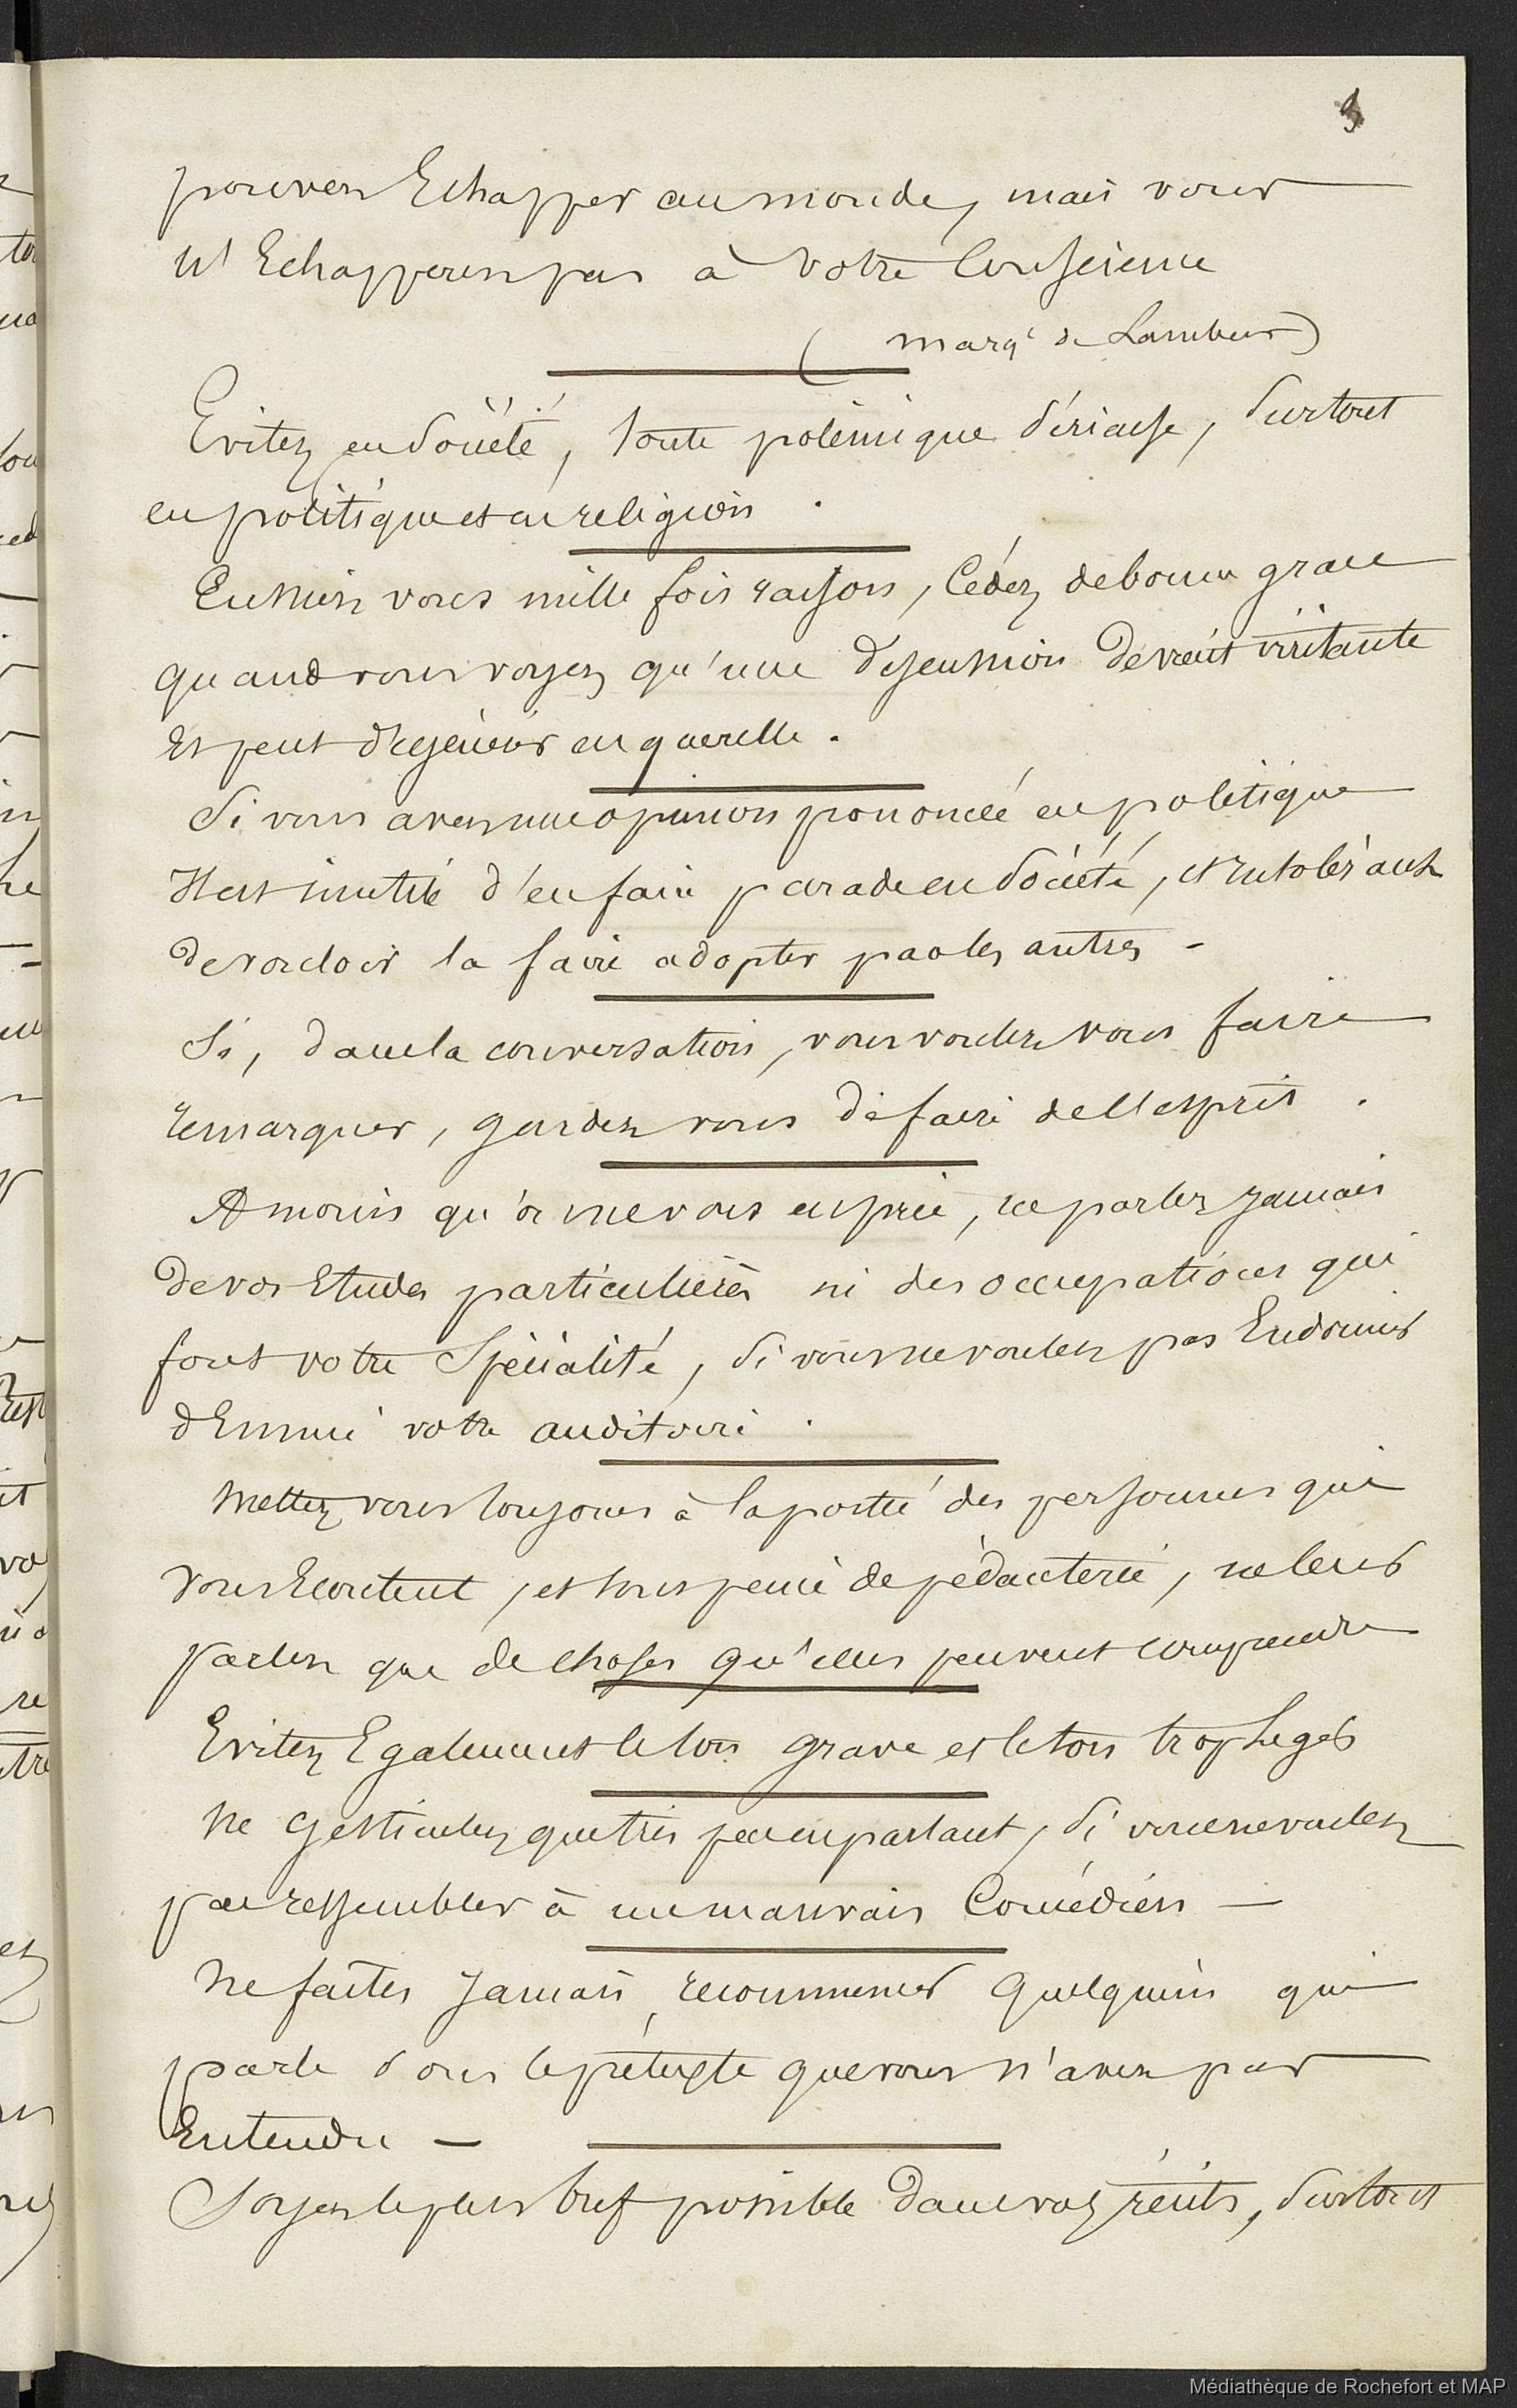 pouvez Echapper au monde, mais vous
n'Echapperez pas à votre Conscience
(marq^e de Lambert)
Evitez en Société, toute polémique sérieuse, surtout
en politique et en religion.
Eussiez vous mille fois raison, Cédez de bonne grace
quand vous voyez qu'une discussion devient irritante
Et peut dégénérer en querelle.
Si vous avez une opinion prononcée en politique
Il est inutile d'en faire parade en Société, et intolérant
de vouloir la faire adopter par les autres -
Si, dans la conversation, vous voulez vous faire
remarquer, gardez vous de faire de l'esprit.
A moins qu'on ne vous en prie, ne parlez jamais
de vos Etudes particulières ni des occupations qui
font votre Spécialité, Si vous ne voulez pas Endormir
d'Ennui votre auditoire.
Mettez vous toujours à la portée des personnes qui
vous Ecoutent, et sous peine de pédanterie, ne leur
parlez que de choses qu'elles peuvent comprendre
Evitez Egalement le ton grave et le ton trop Leger
Ne Gesticulez que très peu en parlant, Si vous ne voulez
pas ressembler à un mauvais Comédien —
Ne faites Jamais recommencer Quelqu'un qui
parle sous le prétexte que vous n'avez pas
Entendu —
Soyez le plus bref possible dans vos récits, surtout
Médiathèque de Rochefort et MAP